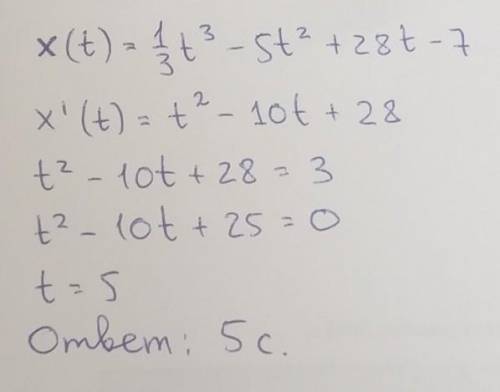 x(t) = 1/3 t³ - 5t² + 28t - 7
x'(t) = t² - 10t + 28
t² - 10t + 28 = 3
t² - 10t + 25 = 0
t = 5
Ответ: 5 с.